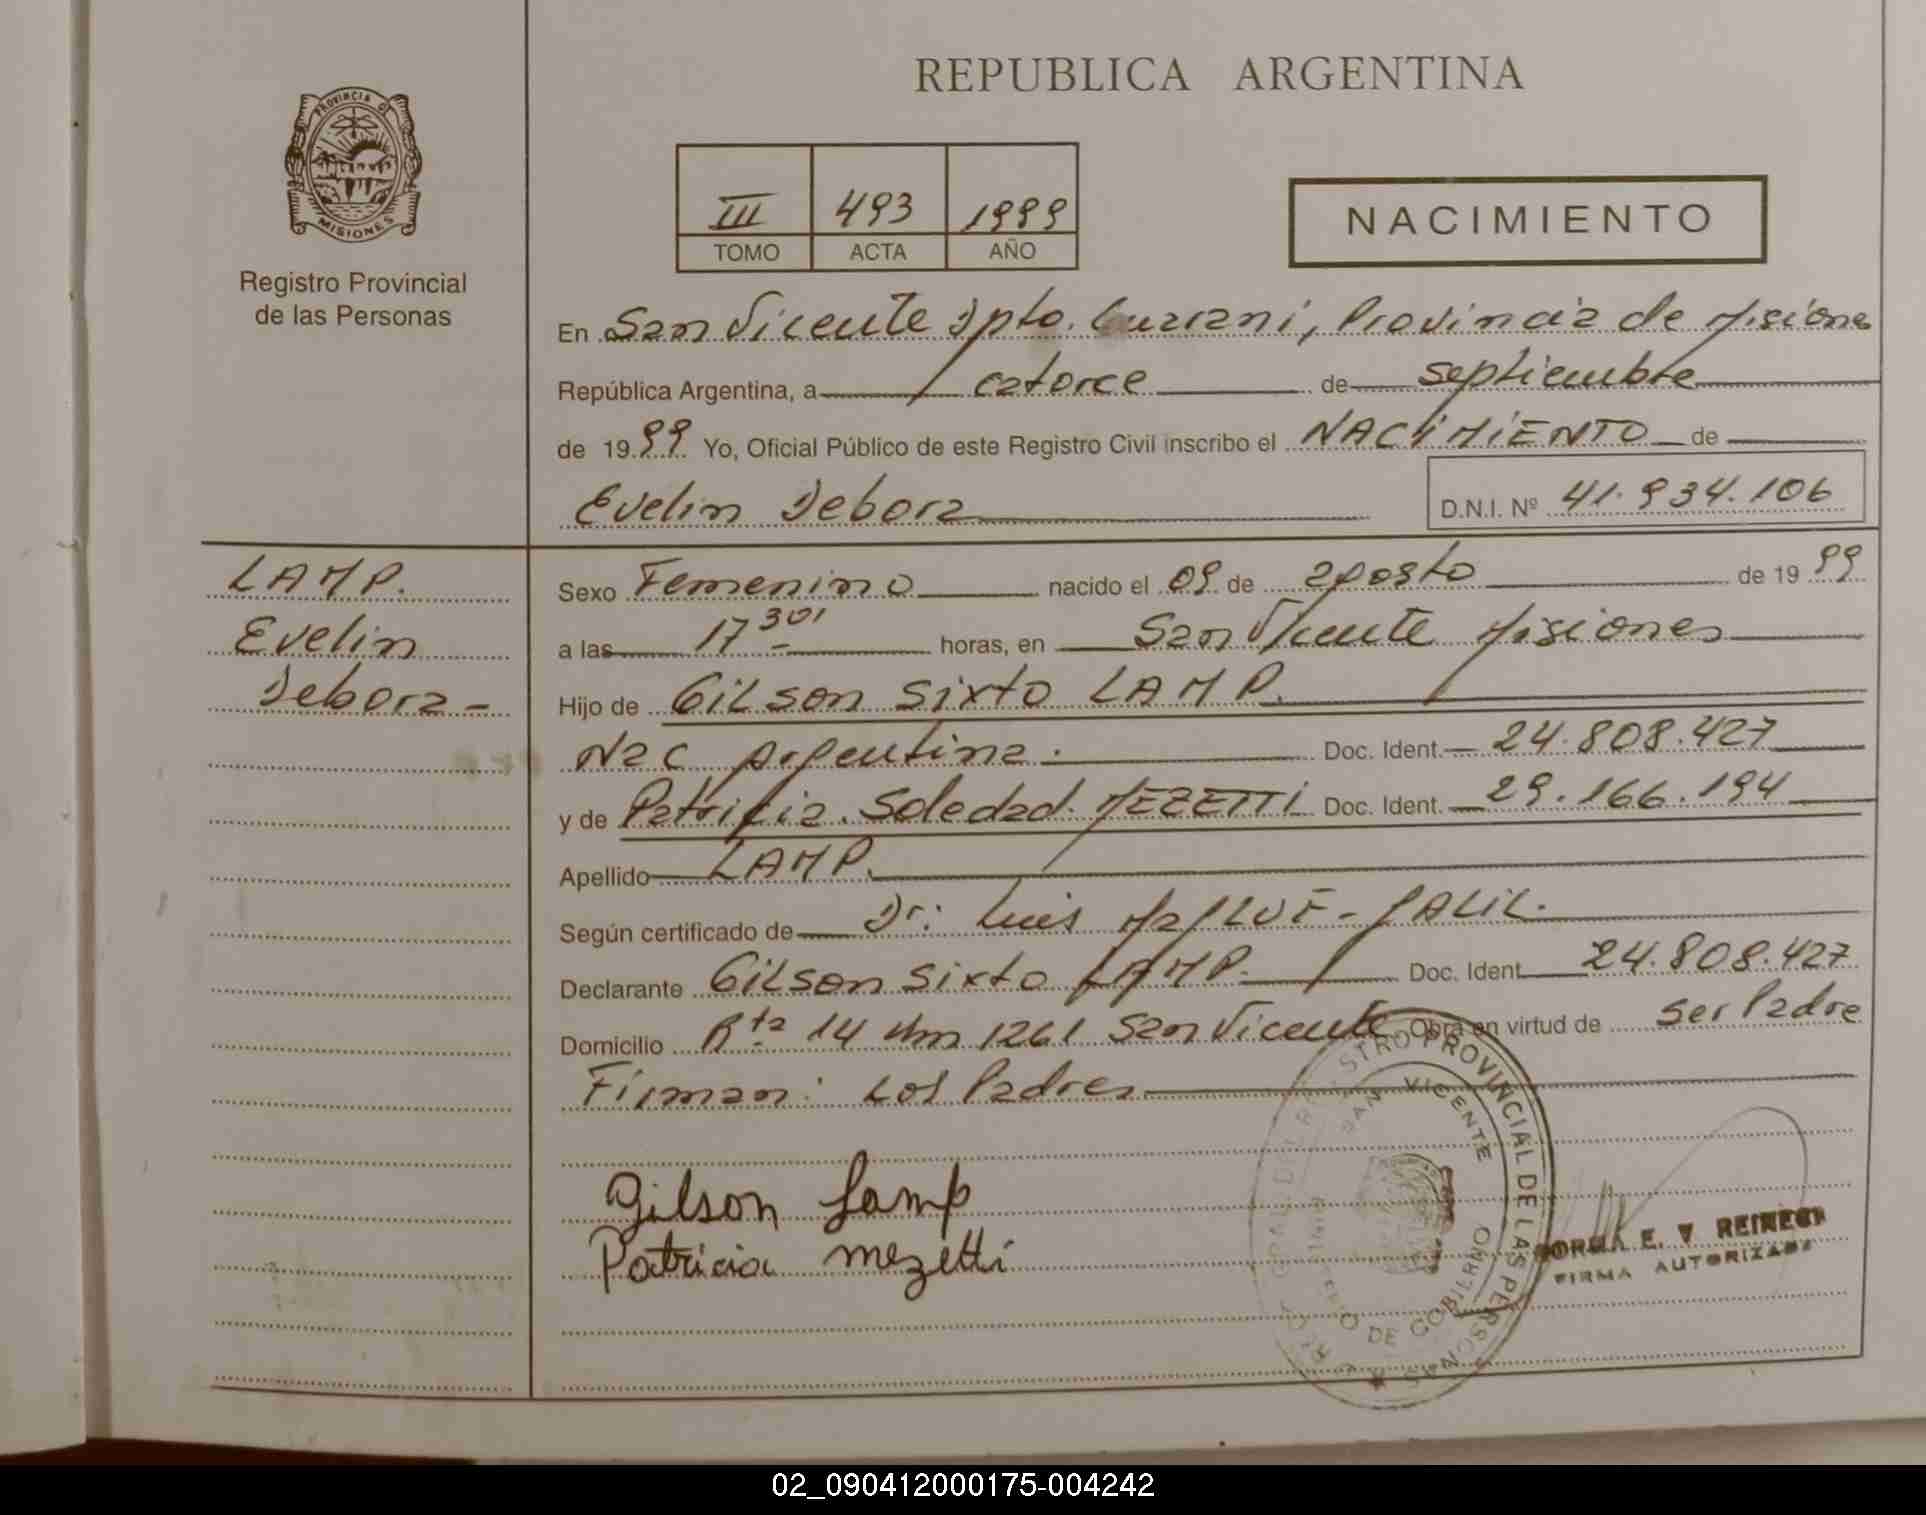 REPUBLICA ARGENTINA
PROVINCIA D
MISIONES
Registro Provincial
de las Personas
III 493 1999
TOMO ACTA AÑO
NACIMIENTO
En San Vicente Dpto. Guarani, Provincia de Misiones
República Argentina, a catorce de septiembre
de 1999 Yo, Oficial Público de este Registro Civil inscribo el NACIMIENTO de
Evelin Debora D.N.I. Nº 41.934.106
LAMP.
Evelin
Debora -
Sexo Femenino nacido el 09 de agosto de 1999
a las 17 30' horas, en San Vicente Misiones
Hijo de Gilson Sixto LAMP.
Nac Argentina. Doc. Ident. 24.808.427
y de Patricia Soledad MEZETTI Doc. Ident. 29.166.194
Apellido LAMP.
Según certificado de Dr: Luis JALIL.
Declarante Gilson Sixto LAMP. Doc. Ident. 24.808.427
Domicilio Rta 14 Km 1261 San Vicente Obra en virtud de ser Padre
Firman: Los Padres
Gilson Lamp
Patricia Mezetti
REGISTRO PROVINCIAL DE LAS PERSONAS
SAN VICENTE
DE GOBIERNO
NORMA E. V. REINECK
FIRMA AUTORIZADA
02_090412000175-004242